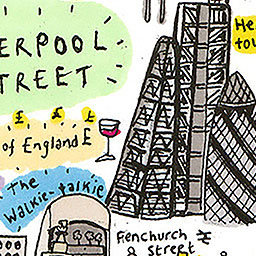 ERPOOL
STREET
He
tou
£ £ £
of England £
The
Walkie-talkie
Fenchurch
& Street